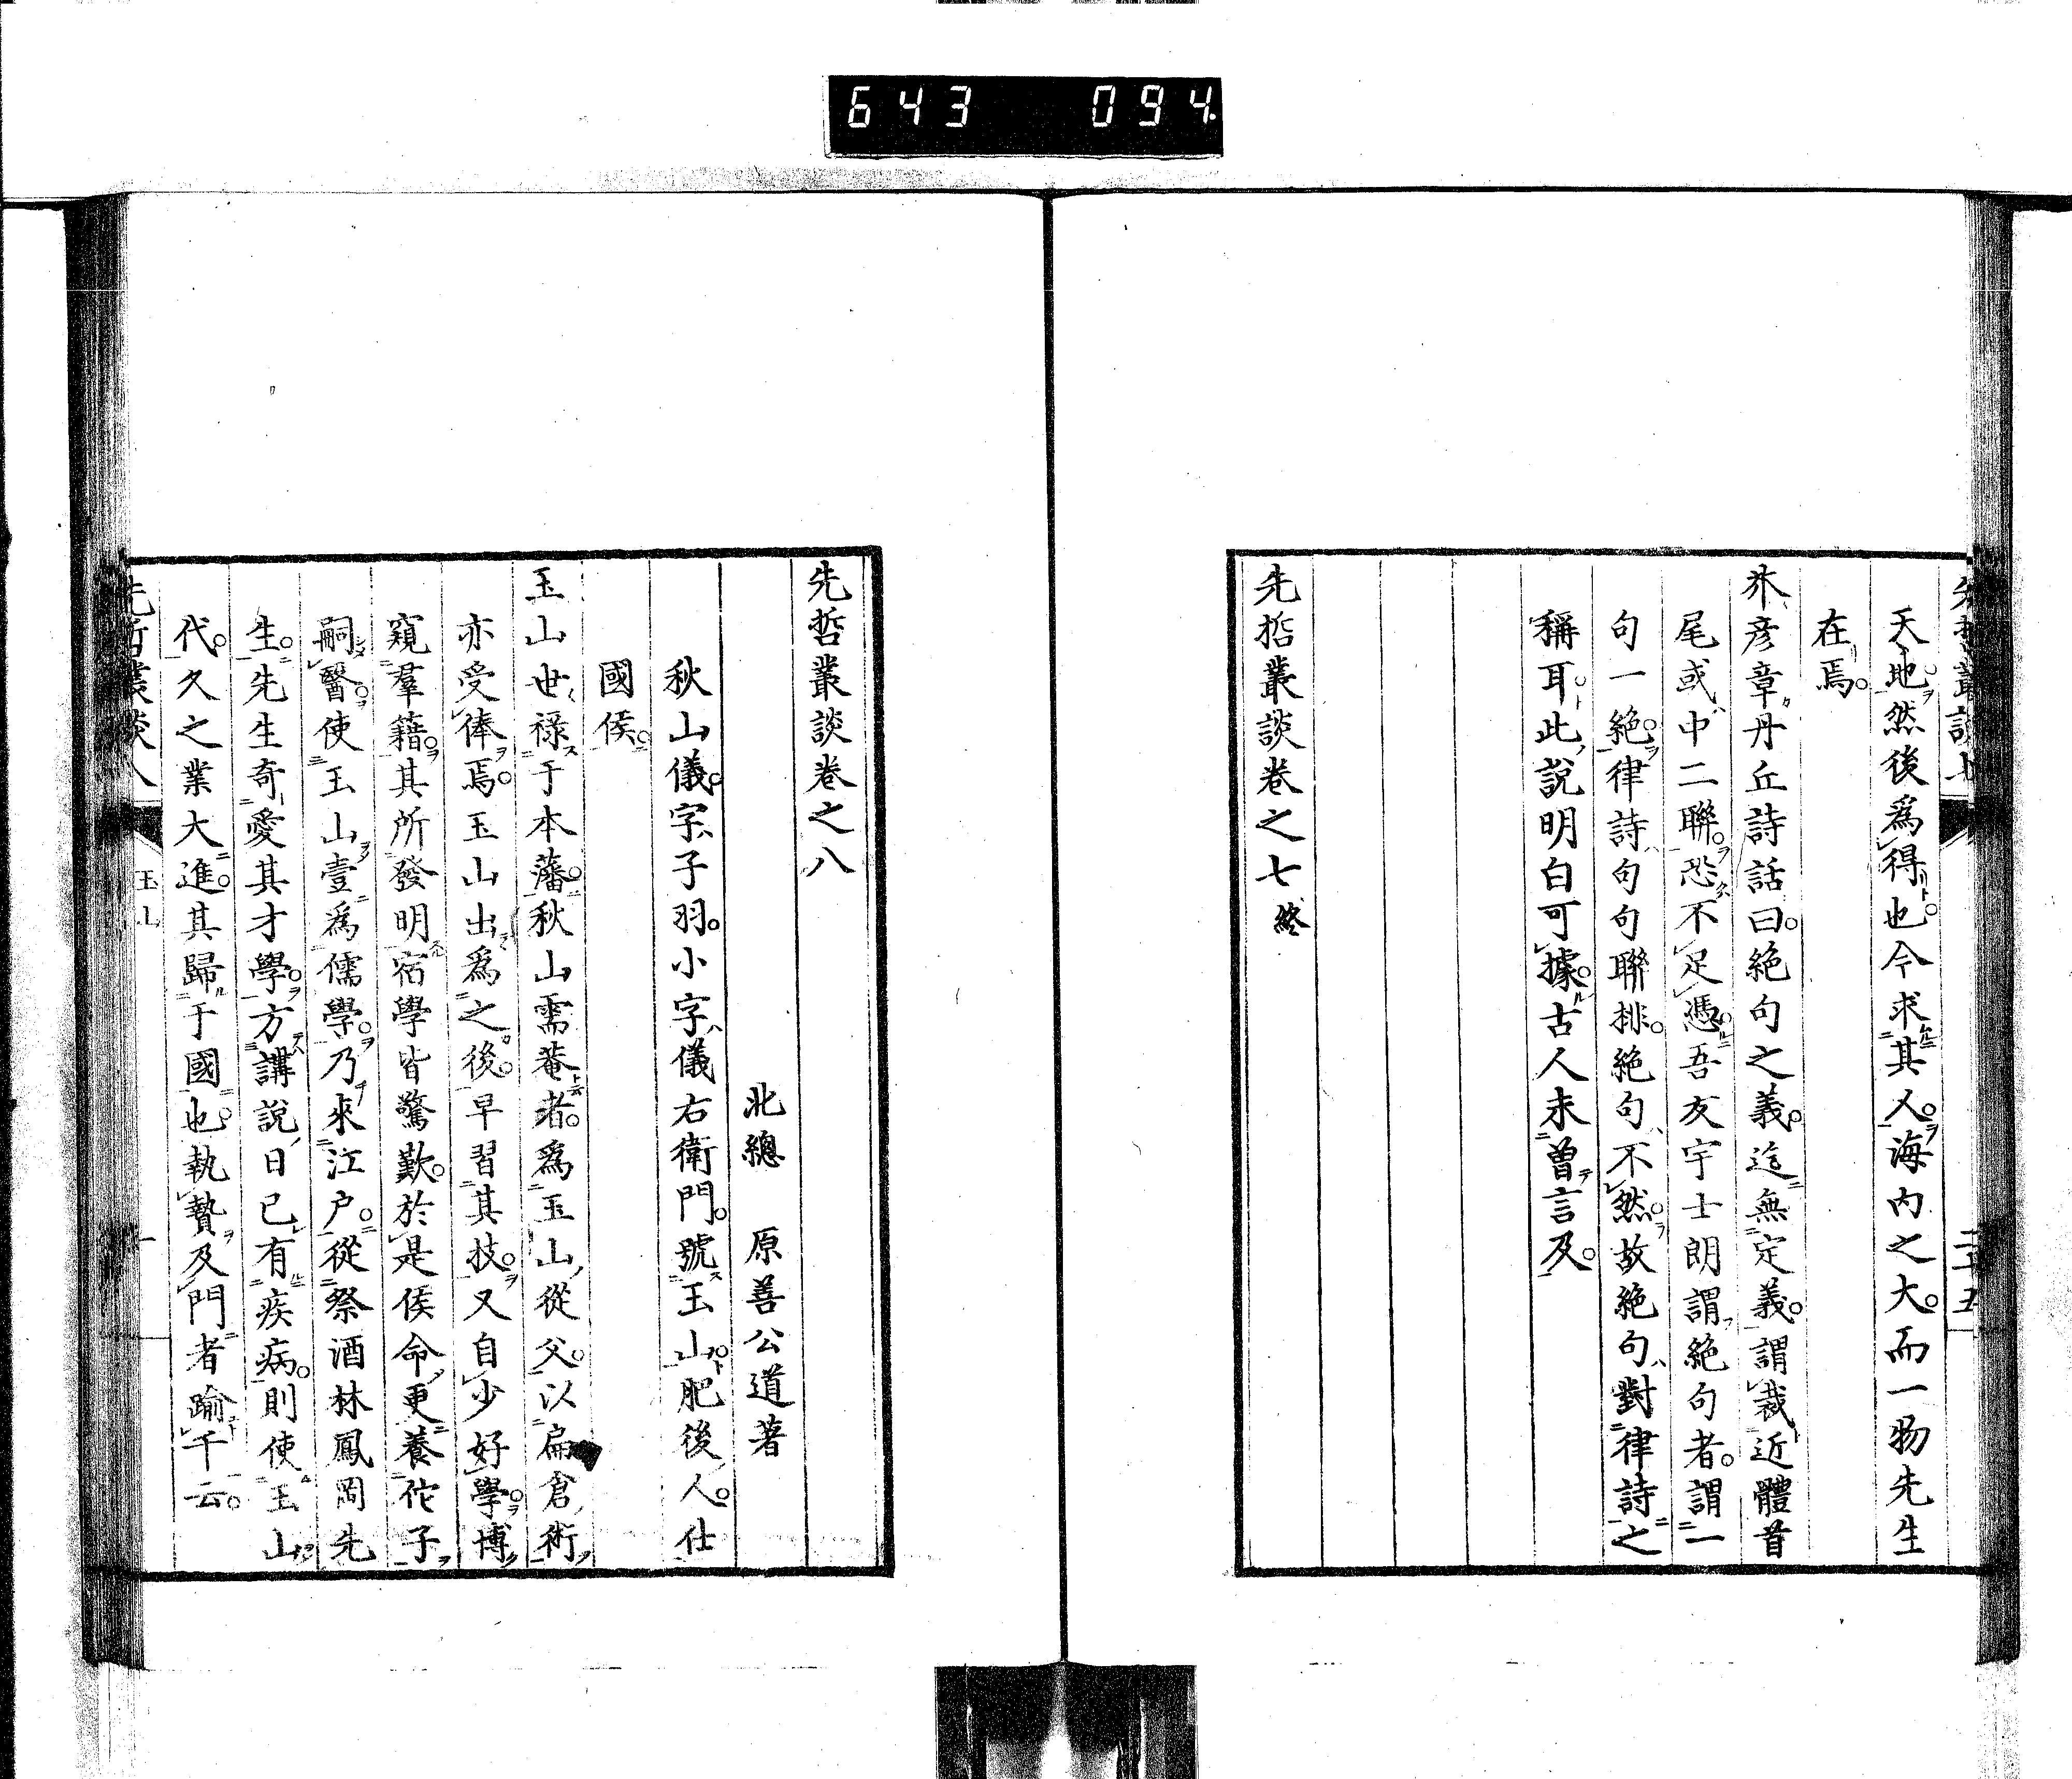 643 094
天地然後爲得也今求其人海内之大而一物先生
在焉
芥彦章丹丘詩話曰絶句之義迄無定義謂裁近體首
尾或中二聯恐不足憑吾友宇士朗謂絶句者謂一
句一絶律詩句句聯排絶句不然故絶句對律詩之
稱耳此説明白可據古人未曾言及
先哲叢談卷之七終
先哲叢談卷之八
北總 原善公道著
秋山儀字子羽小字儀右衛門號玉山肥後人仕
國侯
玉山世祿于本藩秋山需菴者爲玉山從父以扁倉術
亦受俸焉玉山出爲之後早習其技又自少好學博
窺羣籍其所發明宿學皆驚歎於是侯命更養佗子
嗣醫使玉山壹爲儒學乃來江戸從祭酒林鳳岡先
生先生奇愛其才學方講説日已有疾病則使玉山
代久之業大進其歸于國也執贄及門者踰千云
先哲叢談八 玉山 一